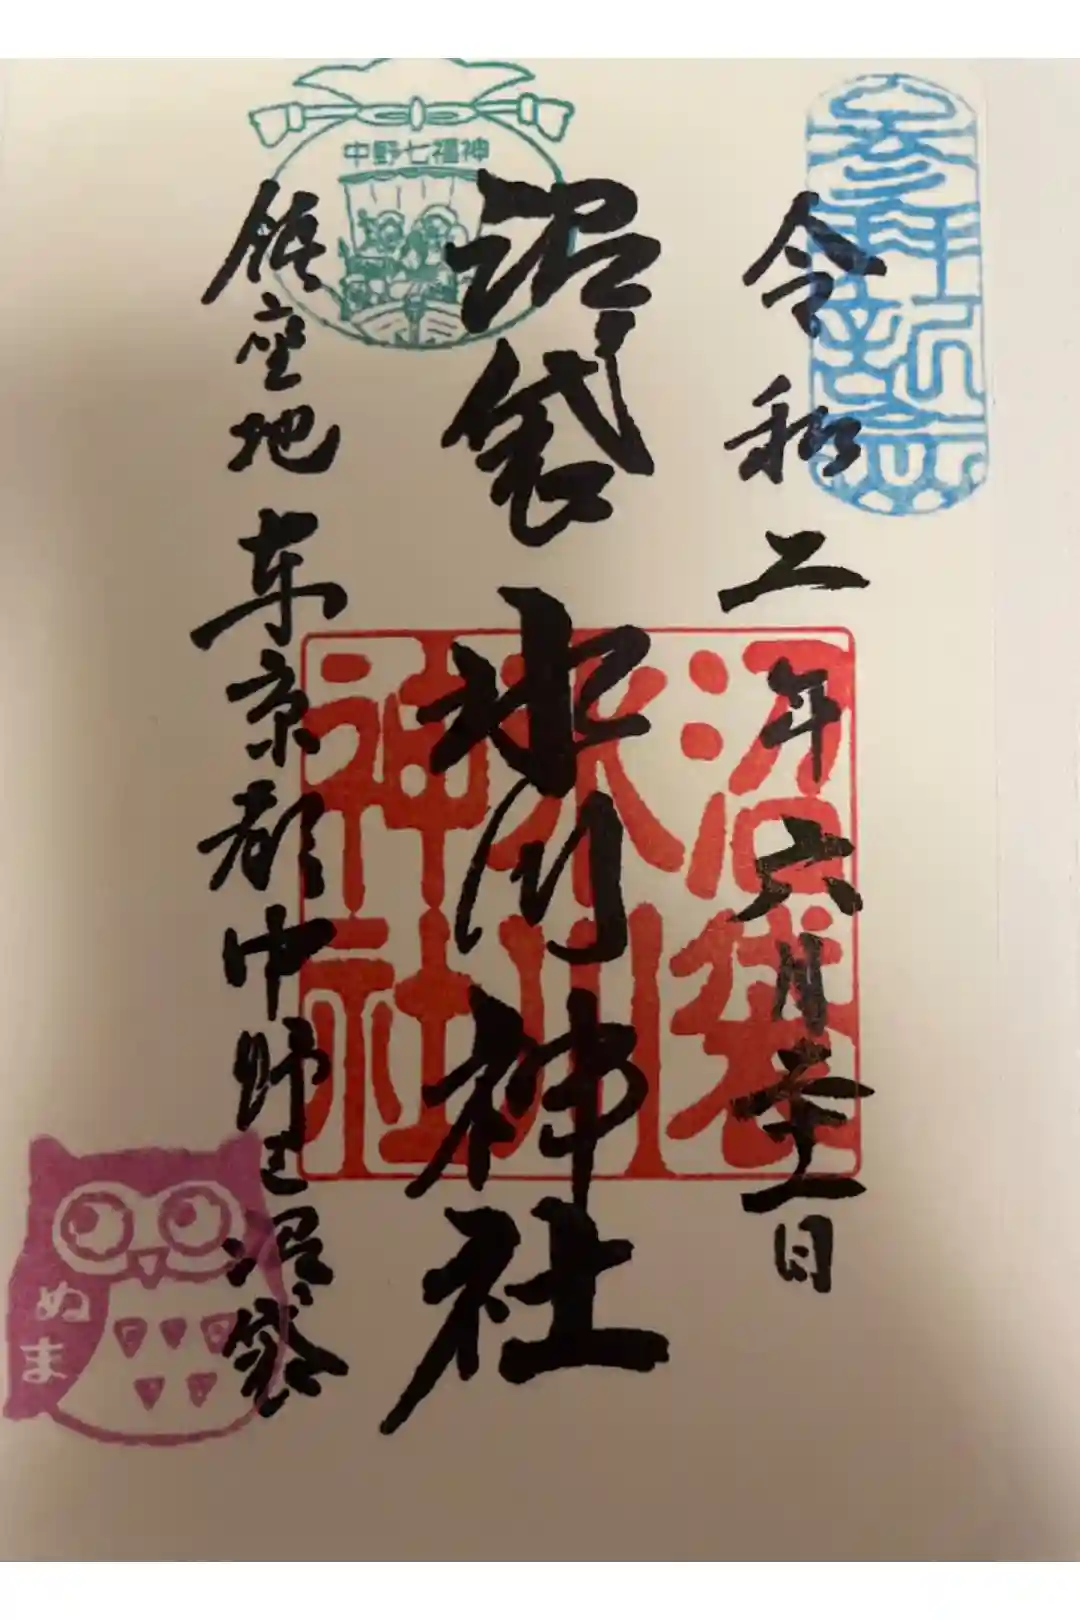 參拝記念
令和二年六月 日
沼袋
氷川
神社
沼袋氷川神社
中野七福神
鎮座地 東京都中野区沼袋
ぬま